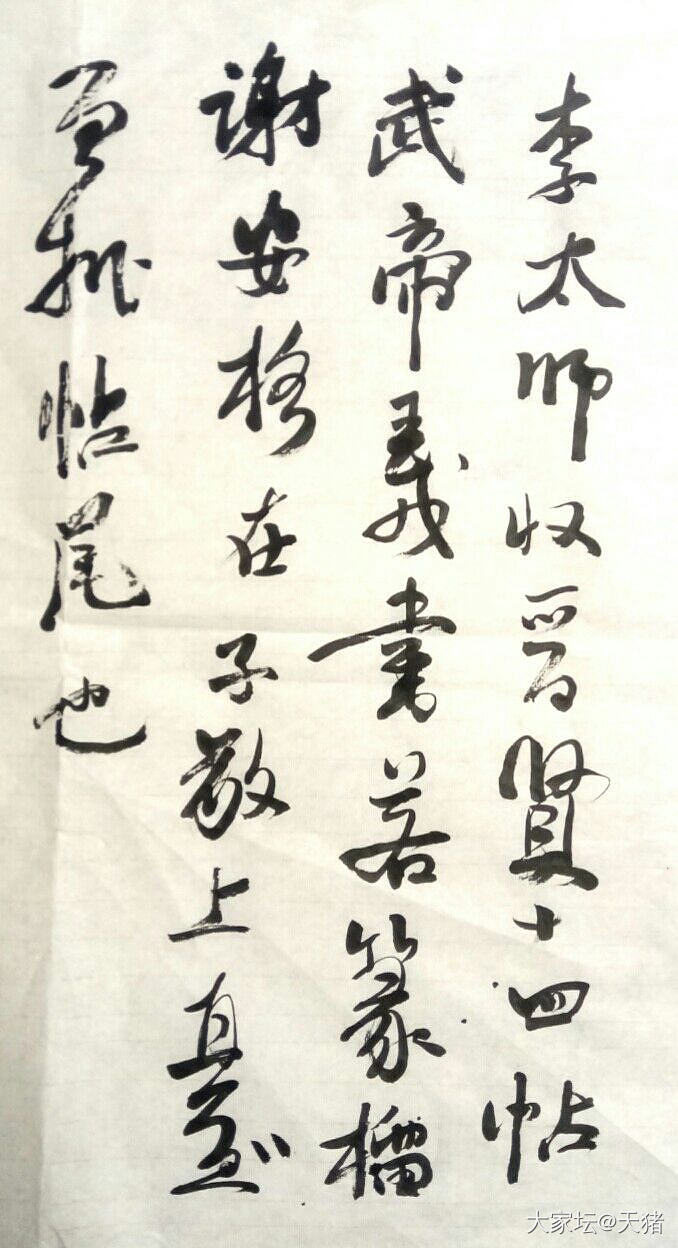 李太師收晉賢十四帖
武帝王戎書若篆籀
謝安格在子敬上真
宜批帖尾也
大家坛@天猪